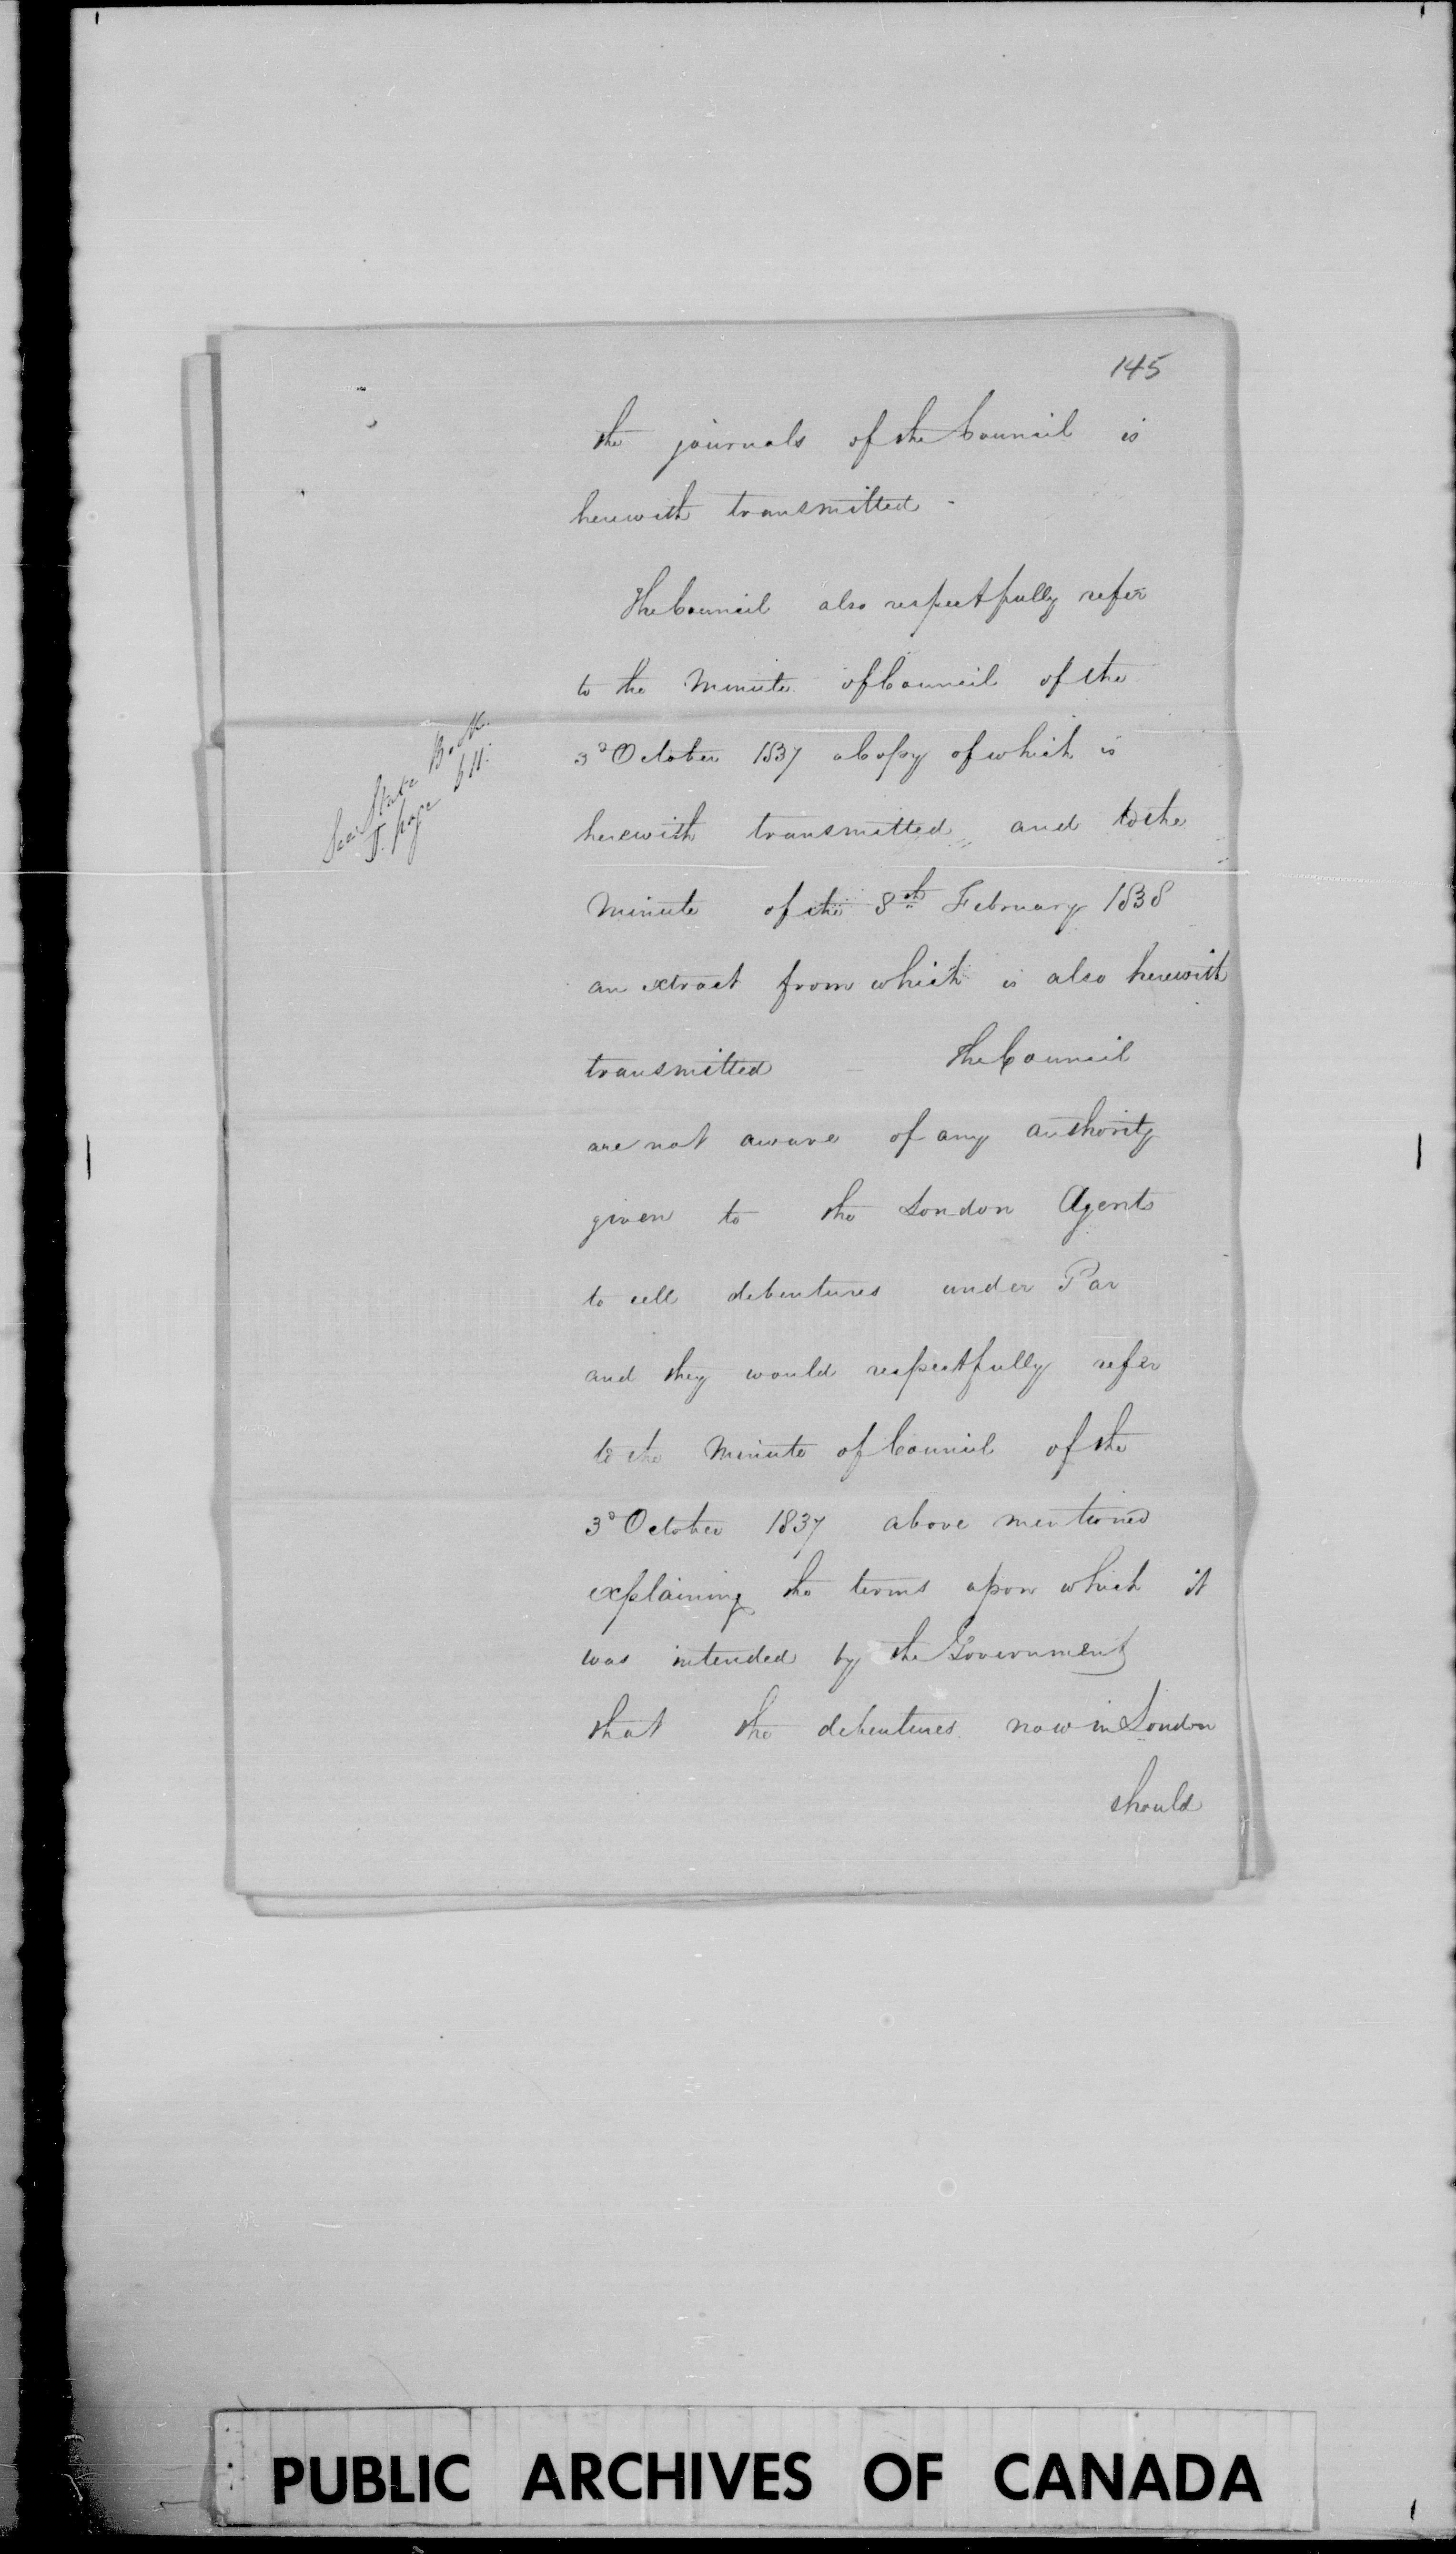 145
the journals of the Council is
herewith transmitted -
The Council also respectfully refer
to the Minute of Council of the
See State Book
J. page 611.
3d October 1837 a Copy of which is
herewith transmitted and to the
Minute of the 8th February 1838
an extract from which is also herewith
transmitted - The Council
are not aware of any authority
given to the London Agents
to sell debentures under Par
and they would respectfully refer
to the Minute of Council of the
3d October 1837 above mentioned
explaining the terms upon which it
was intended by the Government
that the debentures now in London
should
PUBLIC ARCHIVES OF CANADA